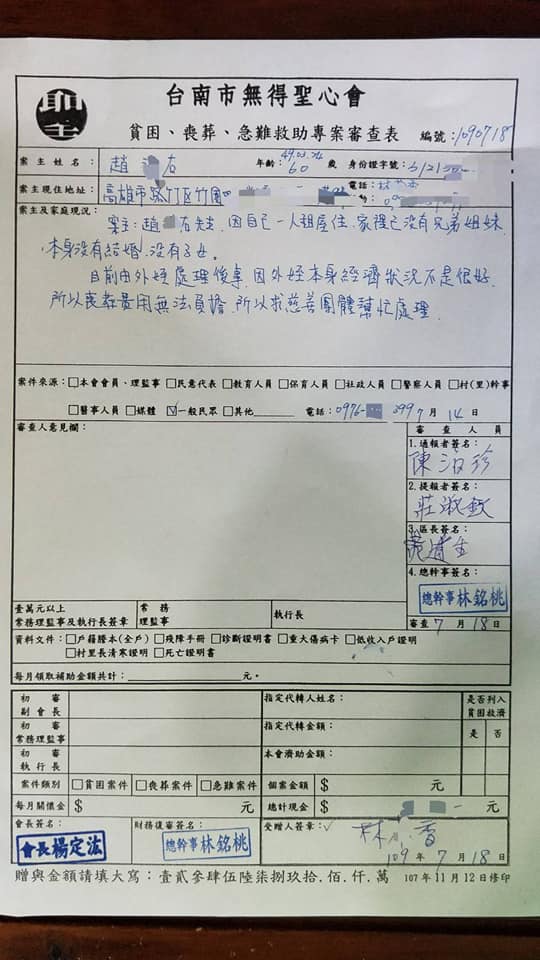 聖
台南市無得聖心會
貧困、喪葬、急難救助專案審查表 編號:1090718
案主姓名: 趙 右 年齡: 49.03.24 60 歲 身份證字號: S12150
案主現住地址: 高雄市 竹区竹園 電話:
案主及家庭現況:
案主:趙 右先生,因自己一人租屋住,家裡已沒有兄弟姐妹,
本身沒有結婚,沒有子女。
目前由外姪處理後事,因外姪本身經濟狀況不是很好,
所以喪葬費用無法負擔,所以求慈善團體幫忙處理.
案件來源:□本會會員、理監事 □民意代表 □教育人員 □保育人員 □社政人員 □警察人員 □村(里)幹事
□醫事人員 □媒體 ☑一般民眾 □其他 電話: 0976- 399 7月14日
審查人意見欄:
審查人員
1.通報者簽名:
陳 珍
2.提報者簽名:
莊淑
3.區長簽名:
4.總幹事簽名:
總幹事林銘桃
壹萬元以上
常務理監事及執行長簽章
常務
理監事
執行長
審查 7月18日
資料文件:□戶籍謄本(全戶) □殘障手冊 □診斷證明書 □重大傷病卡 □低收入戶證明
□村里長清寒證明 □死亡證明書
每月領取補助金額共計: 元。
初審
副會長
指定代轉人姓名:
是否列入
貧困救濟
初審
常務理監事
指定代轉金額:
是 否
初審
執行長
本會濟助金額:
案件類別 □貧困案件 □喪葬案件 □急難案件 個案金額 $ 元
每月關懷金 $ 元 總計現金 $ 元
會長簽名:
會長楊定法
財務復審簽名:
總幹事林銘桃
受贈人簽章:
林 香
109年7月18日
贈與金額請填大寫:壹貳參肆伍陸柒捌玖拾.佰.仟.萬 107年11月12日修印